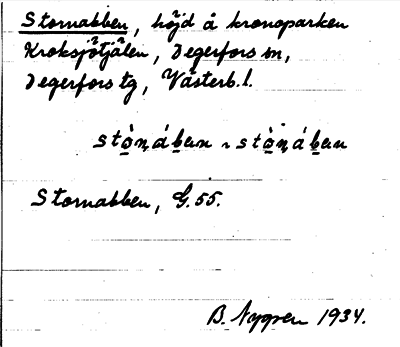 Stornabben, höjd å kronoparken
Kroksjötjälen, Degerfors sn,
Degerfors tg, Västerb.l.
Stornabben, G.55.
B. Nygren 1934.